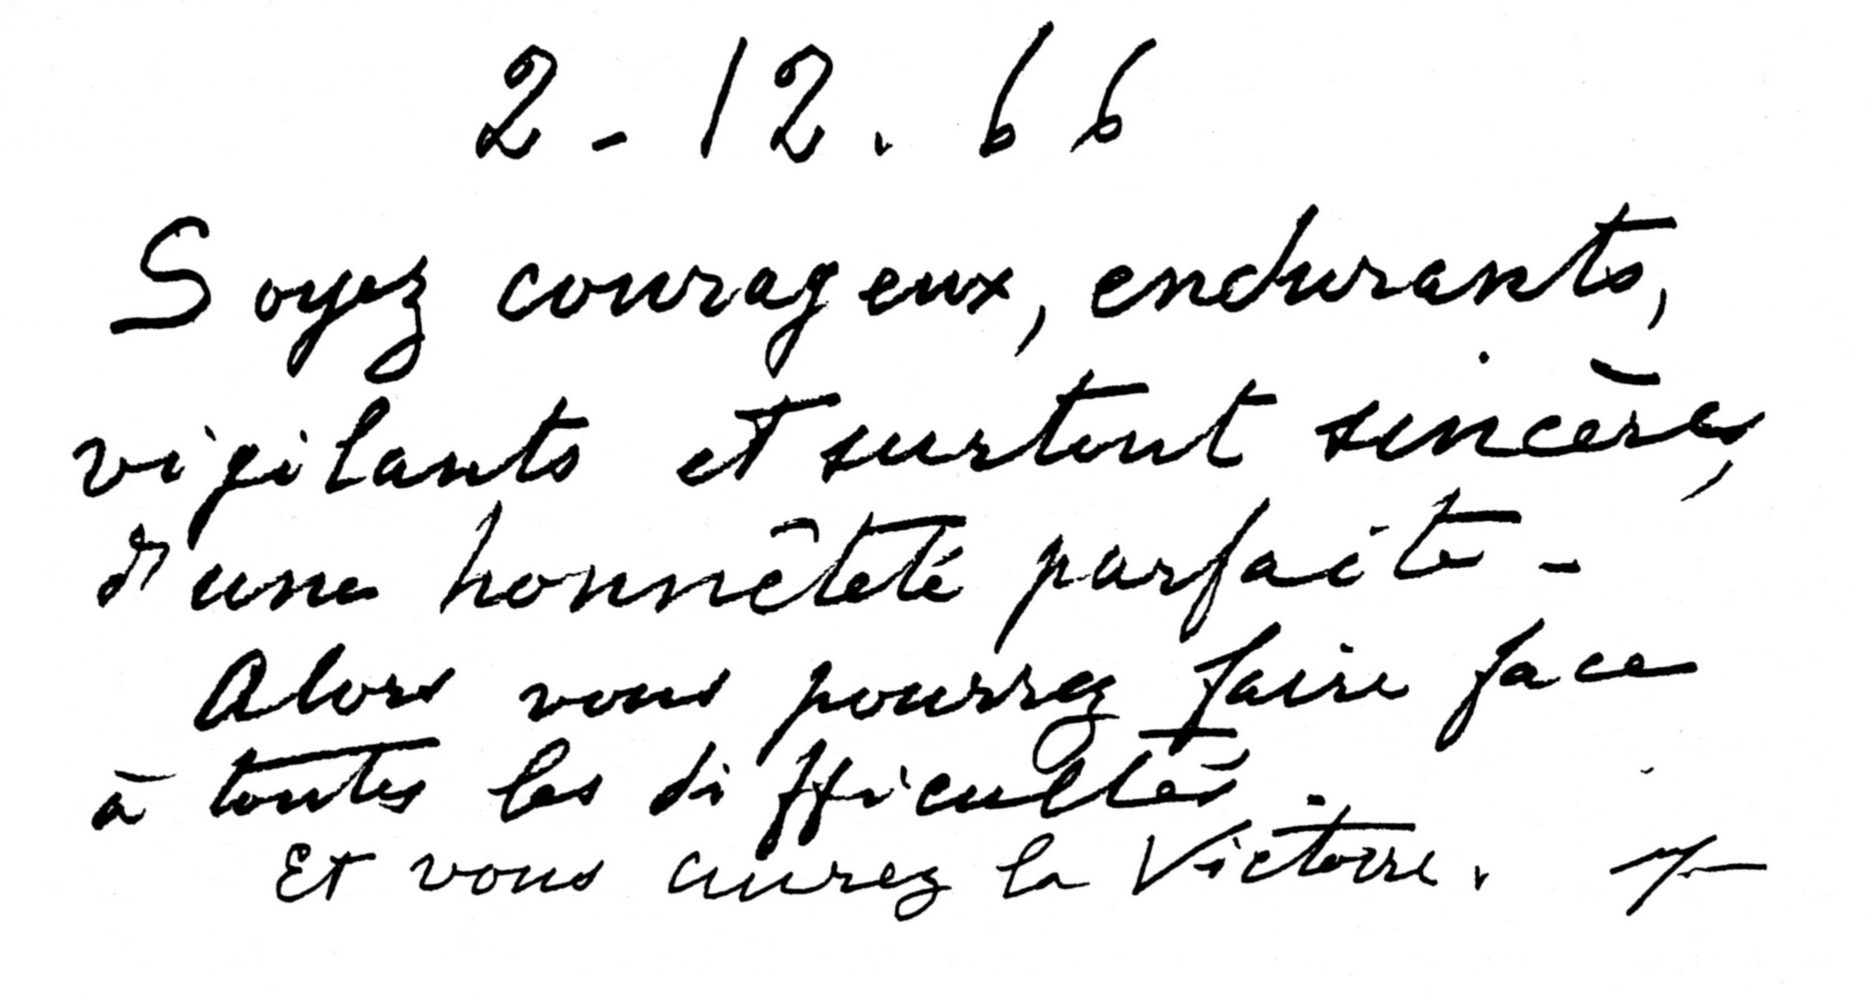 2-12.66
Soyez courageux, endurants,
vigilants et surtout sincères,
d'une honnêteté parfaite -
Alors vous pourrez faire face
à toutes les difficultés.
Et vous aurez la Victoire.